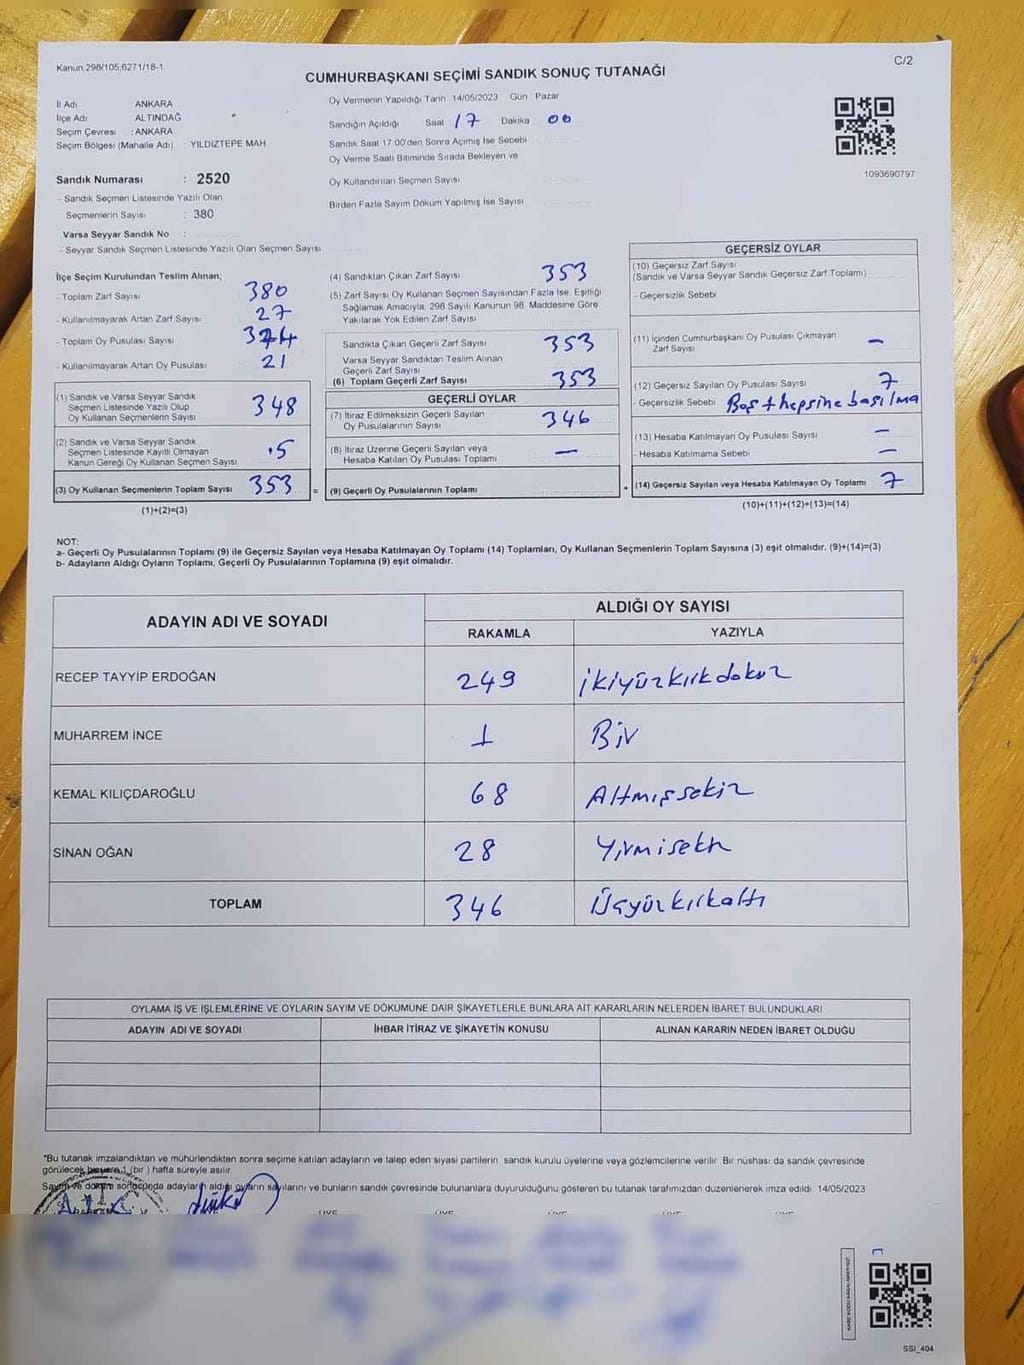 Kanun.298/105,6271/18-1
C/2
CUMHURBAŞKANI SEÇİMİ SANDIK SONUÇ TUTANAĞI
İl Adı : ANKARA
İlçe Adı : ALTINDAĞ
Seçim Çevresi : ANKARA
Seçim Bölgesi (Mahalle Adı) : YILDIZTEPE MAH
Sandık Numarası : 2520
- Sandık Seçmen Listesinde Yazılı Olan
Seçmenlerin Sayısı : 380
Varsa Seyyar Sandık No :
- Seyyar Sandık Seçmen Listesinde Yazılı Olan Seçmen Sayısı
Oy Vermenin Yapıldığı Tarih 14/05/2023 Gün Pazar
Sandığın Açıldığı Saat 17 Dakika 00
Sandık Saat 17.00'den Sonra Açımış İse Sebebi
Oy Verme Saati Bitiminde Sırada Bekleyen ve
Oy Kullandırılan Seçmen Sayısı
Birden Fazla Sayım Döküm Yapılmış İse Sayısı
1093690797
İlçe Seçim Kurulundan Teslim Alınan;
- Toplam Zarf Sayısı 380
- Kullanılmayarak Artan Zarf Sayısı 27
- Toplam Oy Pusulası Sayısı 374
- Kullanılmayarak Artan Oy Pusulası 21
(1) Sandık ve Varsa Seyyar Sandık
Seçmen Listesinde Yazılı Olup
Oy Kullanan Seçmenlerin Sayısı 348
(2) Sandık ve Varsa Seyyar Sandık
Seçmen Listesinde Kayıtlı Olmayan
Kanun Gereği Oy Kullanan Seçmen Sayısı 5
(3) Oy Kullanan Seçmenlerin Toplam Sayısı 353
(1)+(2)=(3)
(4) Sandıktan Çıkan Zarf Sayısı 353
(5) Zarf Sayısı Oy Kullanan Seçmen Sayısından Fazla İse, Eşitliği
Sağlamak Amacıyla, 298 Sayılı Kanunun 98. Maddesine Göre
Yakılarak Yok Edilen Zarf Sayısı
Sandıkta Çıkan Geçerli Zarf Sayısı 353
Varsa Seyyar Sandıktan Teslim Alınan
Geçerli Zarf Sayısı
(6) Toplam Geçerli Zarf Sayısı 353
GEÇERLİ OYLAR
(7) İtiraz Edilmeksizin Geçerli Sayılan
Oy Pusulalarının Sayısı 346
(8) İtiraz Üzerine Geçerli Sayılan veya
Hesaba Katılan Oy Pusulası Toplamı —
= (9) Geçerli Oy Pusulalarının Toplamı
GEÇERSİZ OYLAR
(10) Geçersiz Zarf Sayısı
(Sandık ve Varsa Seyyar Sandık Geçersiz Zarf Toplamı)
- Geçersizlik Sebebi
(11) İçinden Cumhurbaşkanı Oy Pusulası Çıkmayan
Zarf Sayısı —
(12) Geçersiz Sayılan Oy Pusulası Sayısı 7
- Geçersizlik Sebebi Boş + hepsine basılma
(13) Hesaba Katılmayan Oy Pusulası Sayısı —
- Hesaba Katılmama Sebebi —
+ (14) Geçersiz Sayılan veya Hesaba Katılmayan Oy Toplamı 7
(10)+(11)+(12)+(13)=(14)
NOT:
a- Geçerli Oy Pusulalarının Toplamı (9) ile Geçersiz Sayılan veya Hesaba Katılmayan Oy Toplamı (14) Toplamları, Oy Kullanan Seçmenlerin Toplam Sayısına (3) eşit olmalıdır. (9)+(14)=(3)
b- Adayların Aldığı Oyların Toplamı, Geçerli Oy Pusulalarının Toplamına (9) eşit olmalıdır.
ADAYIN ADI VE SOYADI ALDIĞI OY SAYISI
RAKAMLA YAZIYLA
RECEP TAYYİP ERDOĞAN 249 ikiyüzkırkdokuz
MUHARREM İNCE 1 Bir
KEMAL KILIÇDAROĞLU 68 Altmışsekiz
SİNAN OĞAN 28 Yirmisekiz
TOPLAM 346 Üçyüzkırkaltı
OYLAMA İŞ VE İŞLEMLERİNE VE OYLARIN SAYIM VE DÖKÜMÜNE DAİR ŞİKAYETLERLE BUNLARA AİT KARARLARIN NELERDEN İBARET BULUNDUKLARI
ADAYIN ADI VE SOYADI İHBAR İTİRAZ VE ŞİKAYETİN KONUSU ALINAN KARARIN NEDEN İBARET OLDUĞU
*Bu tutanak imzalandıktan ve mühürlendikten sonra seçime katılan adayların ve talep eden siyasi partilerin sandık kurulu üyelerine veya gözlemcilerine verilir. Bir nüshası da sandık çevresinde
görülecek bir yere 1 (bir) hafta süreyle asılır.
Sayım ve döküm sonucunda adayların aldığı oyların sayılarını ve bunların sandık çevresinde bulunanlara duyurulduğunu gösteren bu tutanak tarafımızdan düzenlenerek imza edildi. 14/05/2023
SSI_404